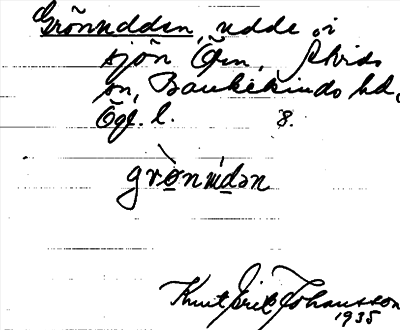 Grönudden, udde i
sjön Öen, Asbids
sn, Bankekinds hd,
Ögl. l. 8.
grönudən
Knut Erik Johansson
1935